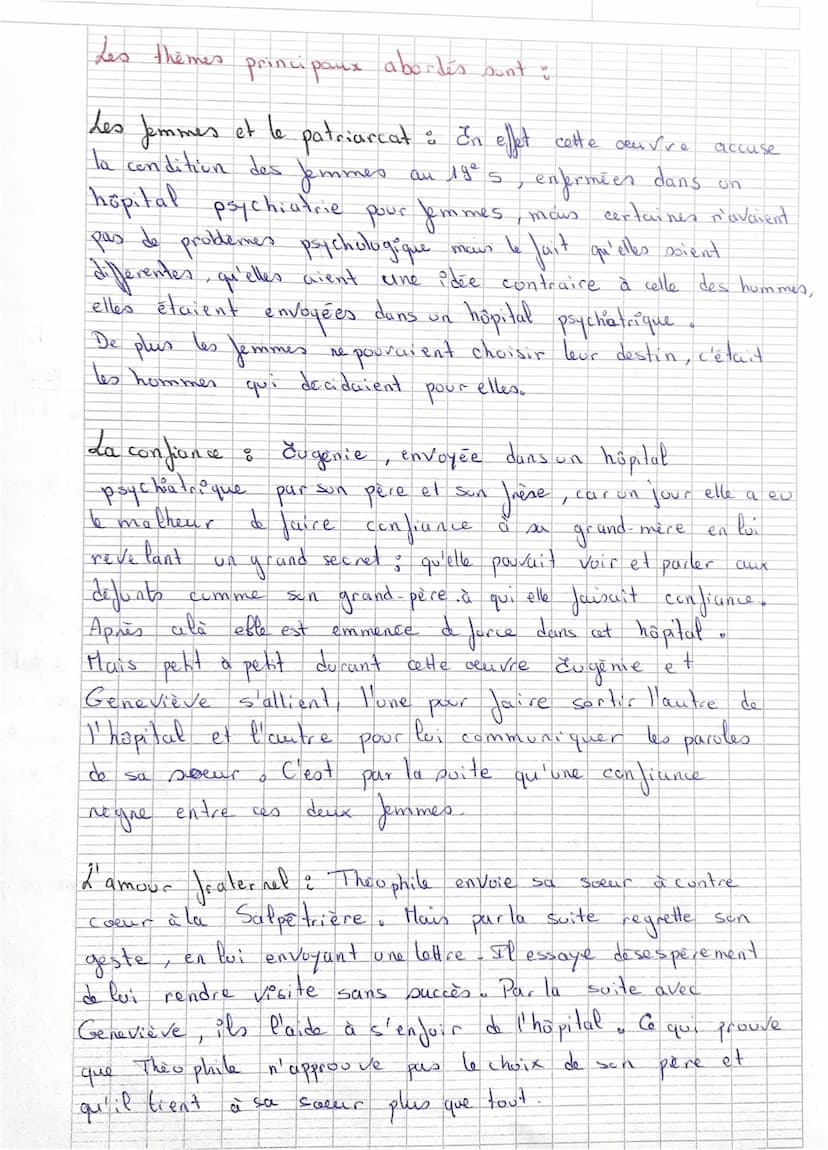 Les thèmes principaux abordés sont :
Les femmes et le patriarcat : En effet cette œuvre accuse
la condition des femmes au 19e s, enfermées dans un
hôpital psychiatrie pour femmes, mais certaines n'avaient
pas de problèmes psychologique mais le fait qu'elles soient
différentes, qu'elles aient une idée contraire à celle des hommes,
elles étaient envoyées dans un hôpital psychiatrique.
De plus les femmes ne pouvaient choisir leur destin, c'était
les hommes qui decidaient pour elles.
La confiance : Eugenie, envoyée dans un hôpital
psychiatrique par son père et son frère, car un jour elle a eu
le malheur de faire confiance à sa grand-mère en lui
revelant un grand secret ; qu'elle pouvait voir et parler aux
défunts comme son grand-père à qui elle faisait confiance.
Après celà elle est emmence de force dans cet hôpital.
Mais petit à petit durant cette œuvre Eugénie et
Geneviève s'allient, l'une pour faire sortir l'autre de
l'hôpital et l'autre pour lui communiquer les paroles
de sa soeur. C'est par la suite qu'une confiance
règne entre ces deux femmes.
L'amour fraternel : Théophile envoie sa soeur à contre
coeur à la Salpêtrière. Mais par la suite regrette son
geste, en lui envoyant une lettre. Il essaye désespérement
de lui rendre visite sans succès. Par la suite avec
Geneviève, ils l'aide à s'enfuir de l'hôpital. Ce qui prouve
que Théophile n'approuve pas le choix de son père et
qu'il tient à sa soeur plus que tout.